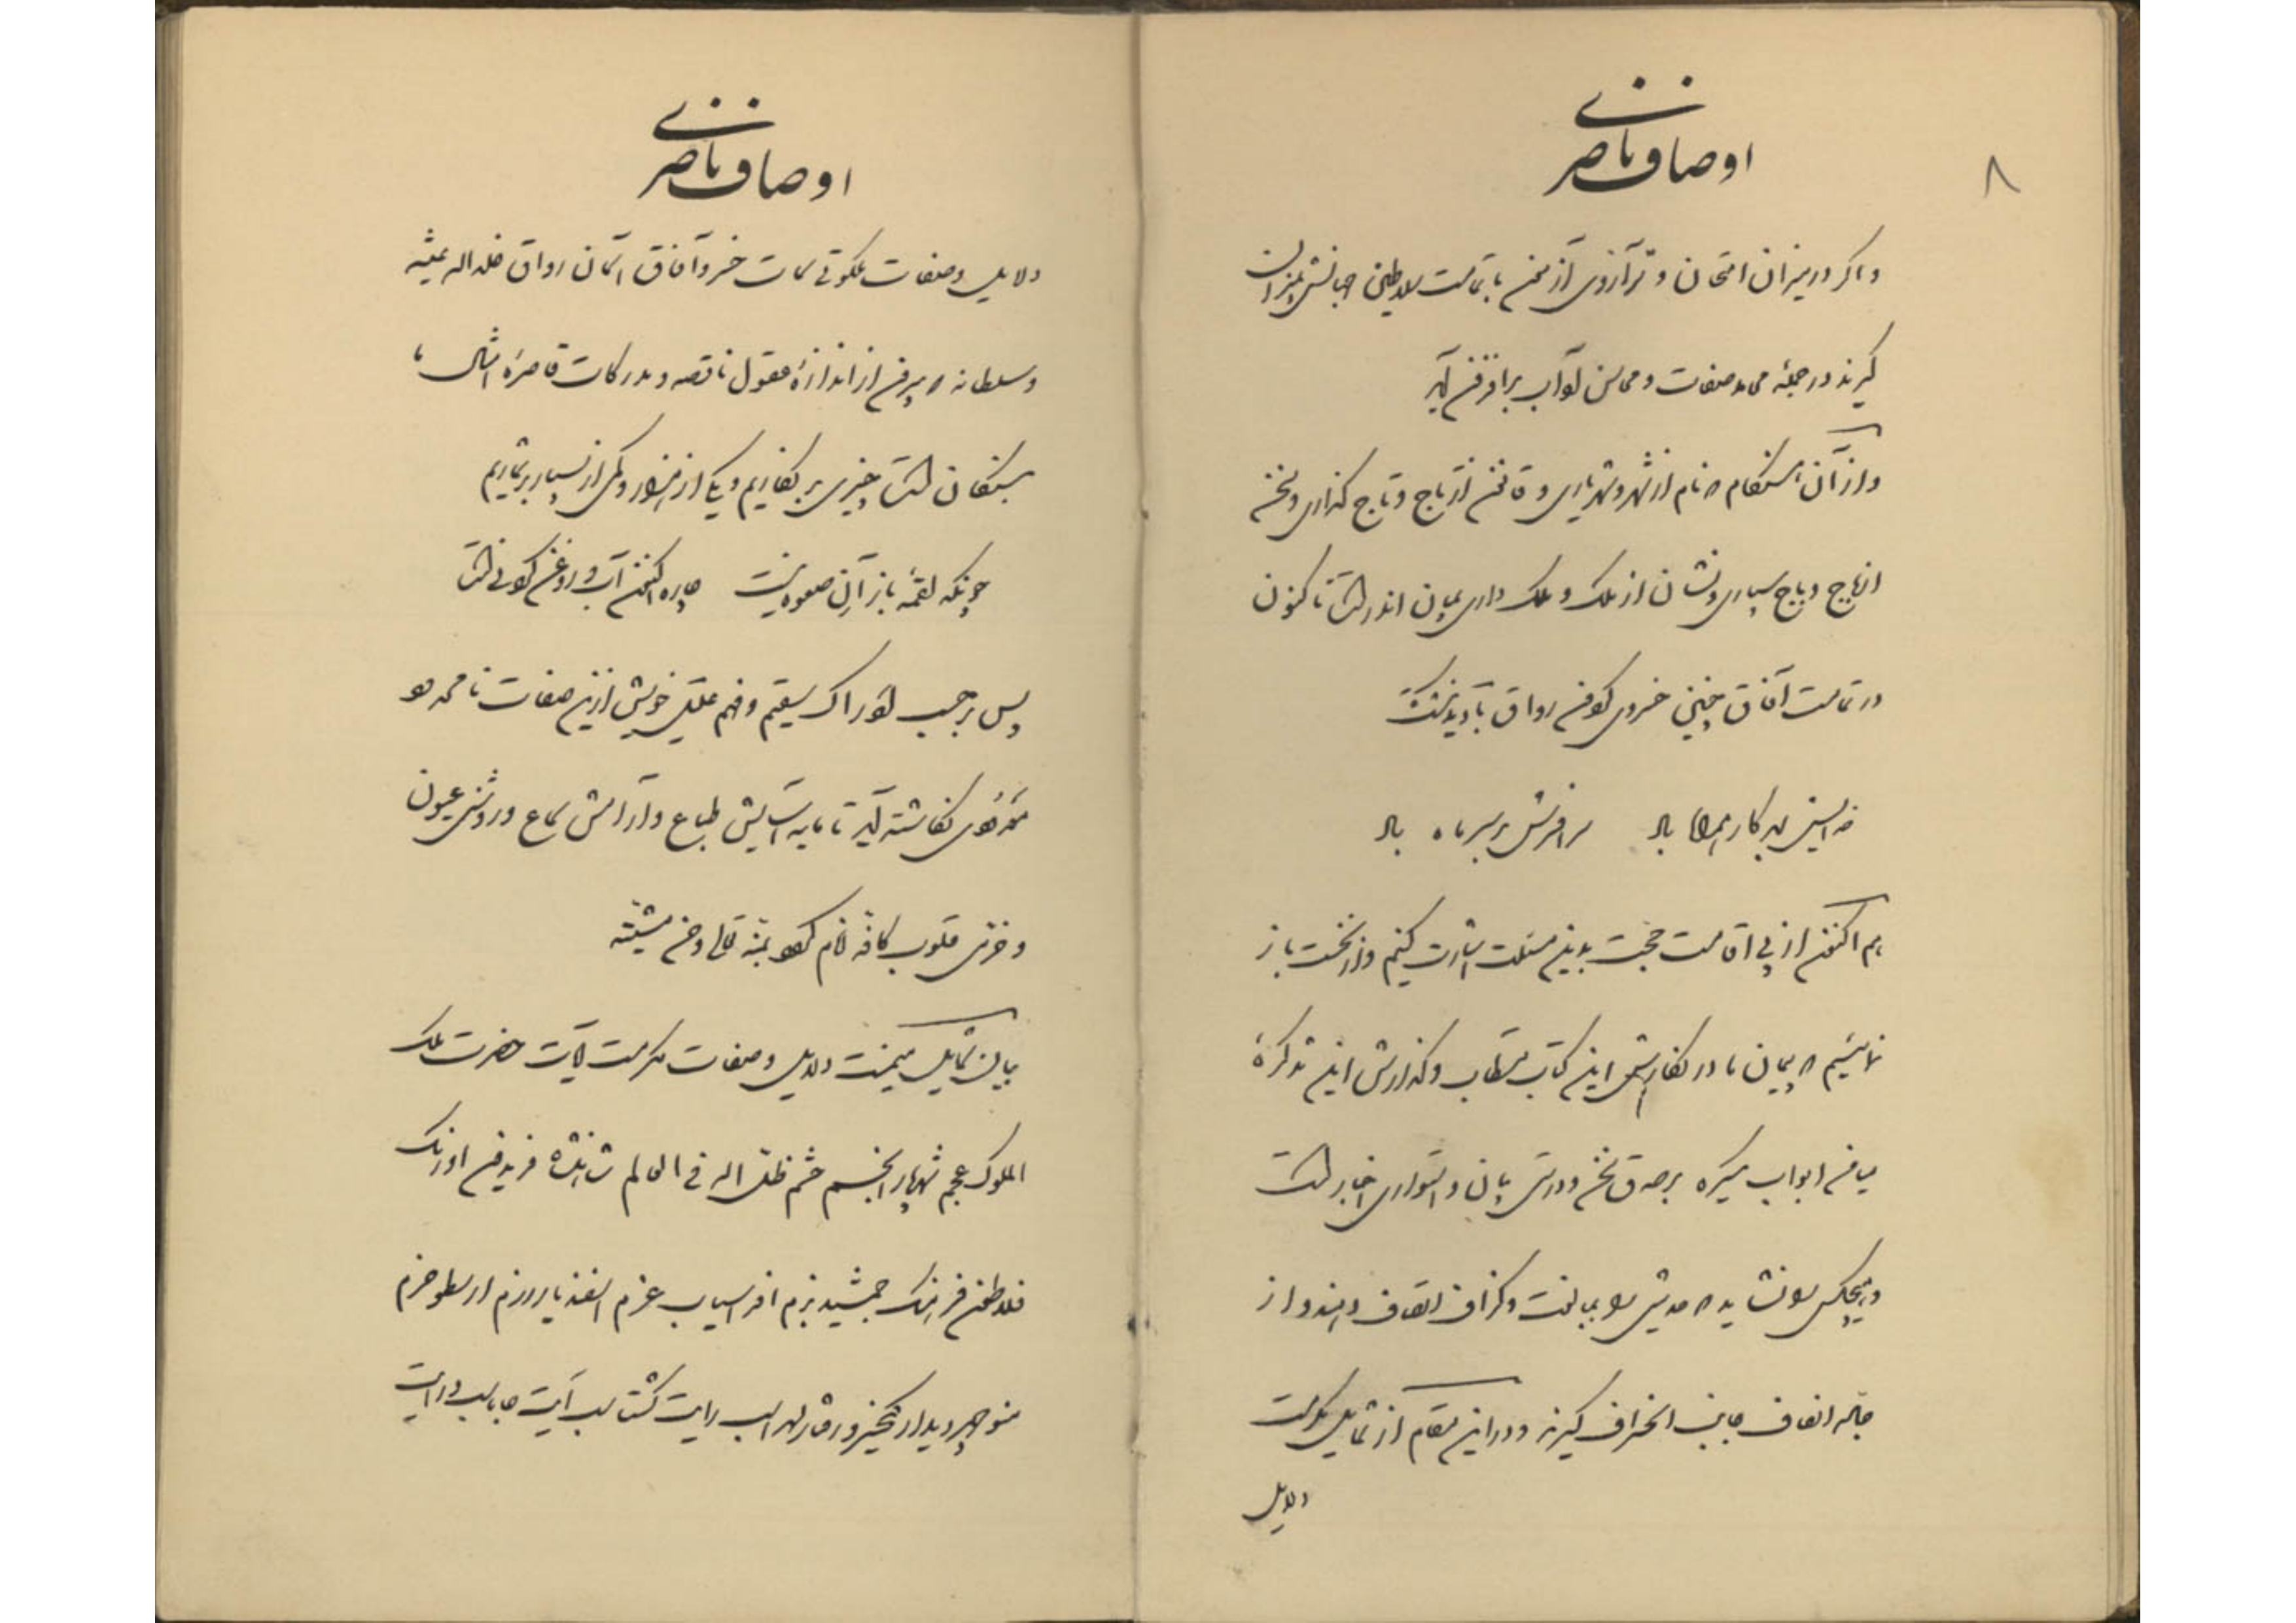 ۸
اوصاف ناصری
و اگر در میزان امتحان و ترازوی آزمون با تمامت سلاطین جهانش بمیزان
گیرند در جمله محامد صفات و محاسن آداب برافزون آید
و از آن هنگام که نام از شهر و شهریاری و قانون از تاج و تاج گذاری و سخن
از باج و باج سپاری و نشان از ملک و ملک داری بمیان اندر است تا کنون
در تمامت آفاق چنین خسروی گردون رواق یاد ندیده است
خدایش بهر کار همراه باد سر افسرش بر سر ماه باد
هم اکنون از پی اقامت حجت بدین مسئلت اشارت کنیم و از نخست باز
نمائیم که پیمان ما در نگارش این کتاب مستطاب و گذارش این تذکرهٔ
میامن ابواب یکسره بر صدق سخن و درستی بیان و استواری اخبار است
و هیچکس را نشاید که حدیثی را بمبالغت و گزاف اتصاف دهند و از
جاده انصاف جانب انحراف گیرند و در این مقام از شمایل مکرمت
دلایل
اوصاف ناصری
دلایل و صفات ملکوتی سمات خسرو آفاق آسمان رواق خلد الله عیشه
و سلطانه که بیرون از اندازهٔ عقول ناقصه و مدرکات قاصرهٔ امثال ما
بستگان است چیزی بر نگاریم و یکی از هزار و کمی از بسیار بر شماریم
چونکه لقمهٔ باز آنِ صعوه نیست چاره اکنون آب و روغن کردنی است
پس بر حسب ادراک سقیم و فهم علیل خویش ازین صفات نامحدود
نگاشته آید تا مایه آسایش طباع و آرامش سماع و روشنی عیون
و خرمی قلوب کافه انام گردد بمنه تعالی و حسن مشیته
بیان شمایل میمنت دلایل و صفات مکرمت آیات حضرت ملک
الملوک عجم شهریار انجم حشم ظل الله فی العالم شاهنشاه فریدون اورنگ
فلاطون فرهنگ جمشید بزم افراسیاب عزم اسفندیار رزم ارسطو حزم
منوچهر دیدار کیخسرو وقار لهراسب رایت گشتاسب آیت جاماسب درایت